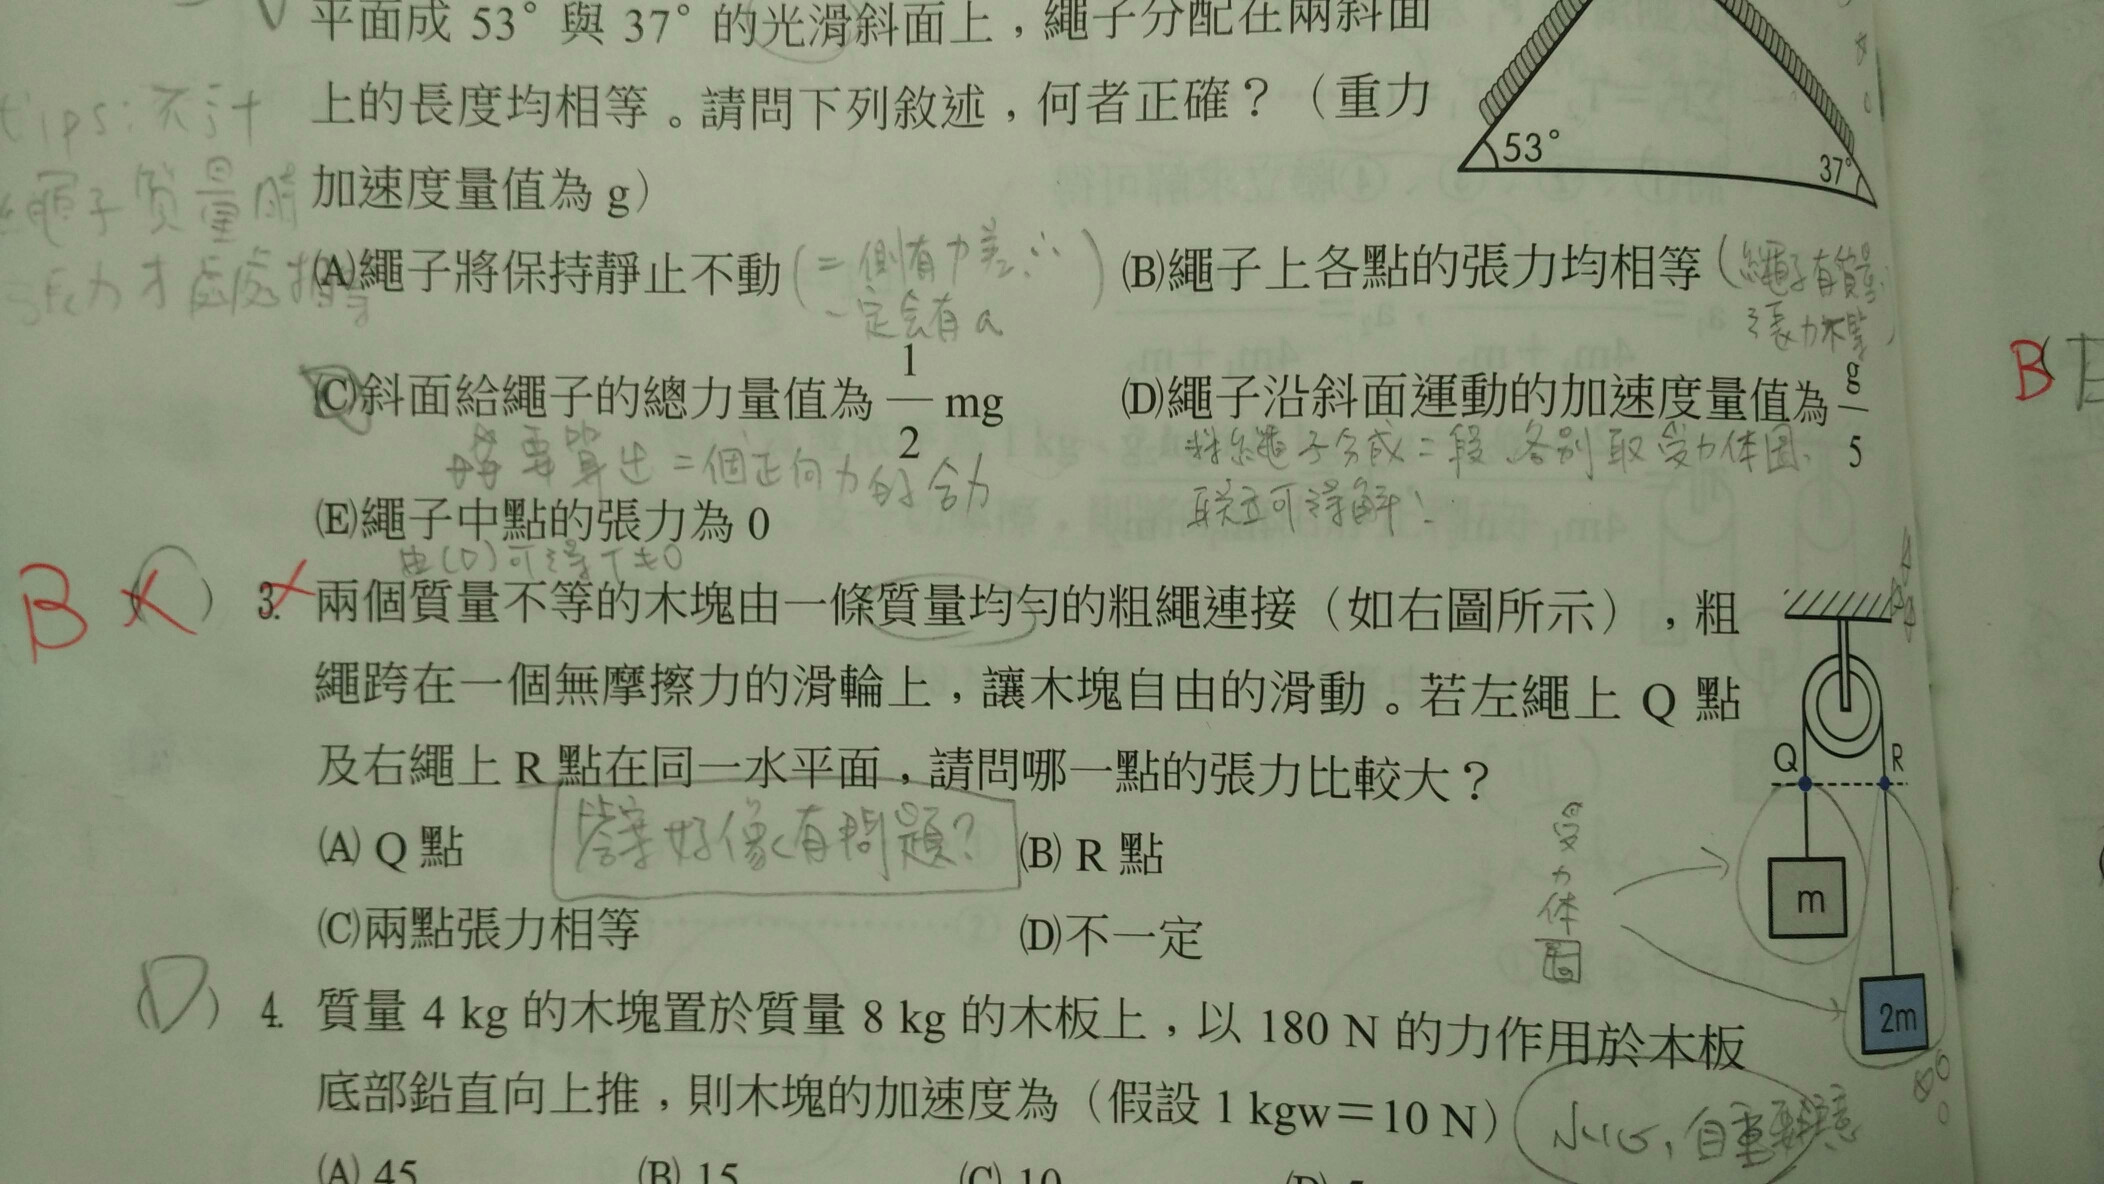 平面成 53° 與 37° 的光滑斜面上，繩子分配在兩斜面
上的長度均相等。請問下列敘述，何者正確？（重力
加速度量值為 g）
53°
37°
tips:不計
繩子質量時
張力才處處相等
(A)繩子將保持靜止不動
(二側有力差∴
一定会有a)
(B)繩子上各點的張力均相等
(繩子有質量
張力不等)
(C)斜面給繩子的總力量值為 1/2 mg
要算出二個正向力的合力
(D)繩子沿斜面運動的加速度量值為 g/5
將繩子分成二段、各別取受力体圖、
联立可得解!
(E)繩子中點的張力為 0
由(D)可得T≠0
B
B
3. 兩個質量不等的木塊由一條質量均勻的粗繩連接（如右圖所示），粗
繩跨在一個無摩擦力的滑輪上，讓木塊自由的滑動。若左繩上 Q 點
及右繩上 R 點在同一水平面，請問哪一點的張力比較大？
答案好像有問題?
(A) Q 點
(B) R 點
(C)兩點張力相等
(D)不一定
Q
R
m
2m
受力体圖
(D) 4. 質量 4 kg 的木塊置於質量 8 kg 的木板上，以 180 N 的力作用於木板
底部鉛直向上推，則木塊的加速度為（假設 1 kgw＝10 N）
自重要注意
(A) 45
(B) 15
(C) 10